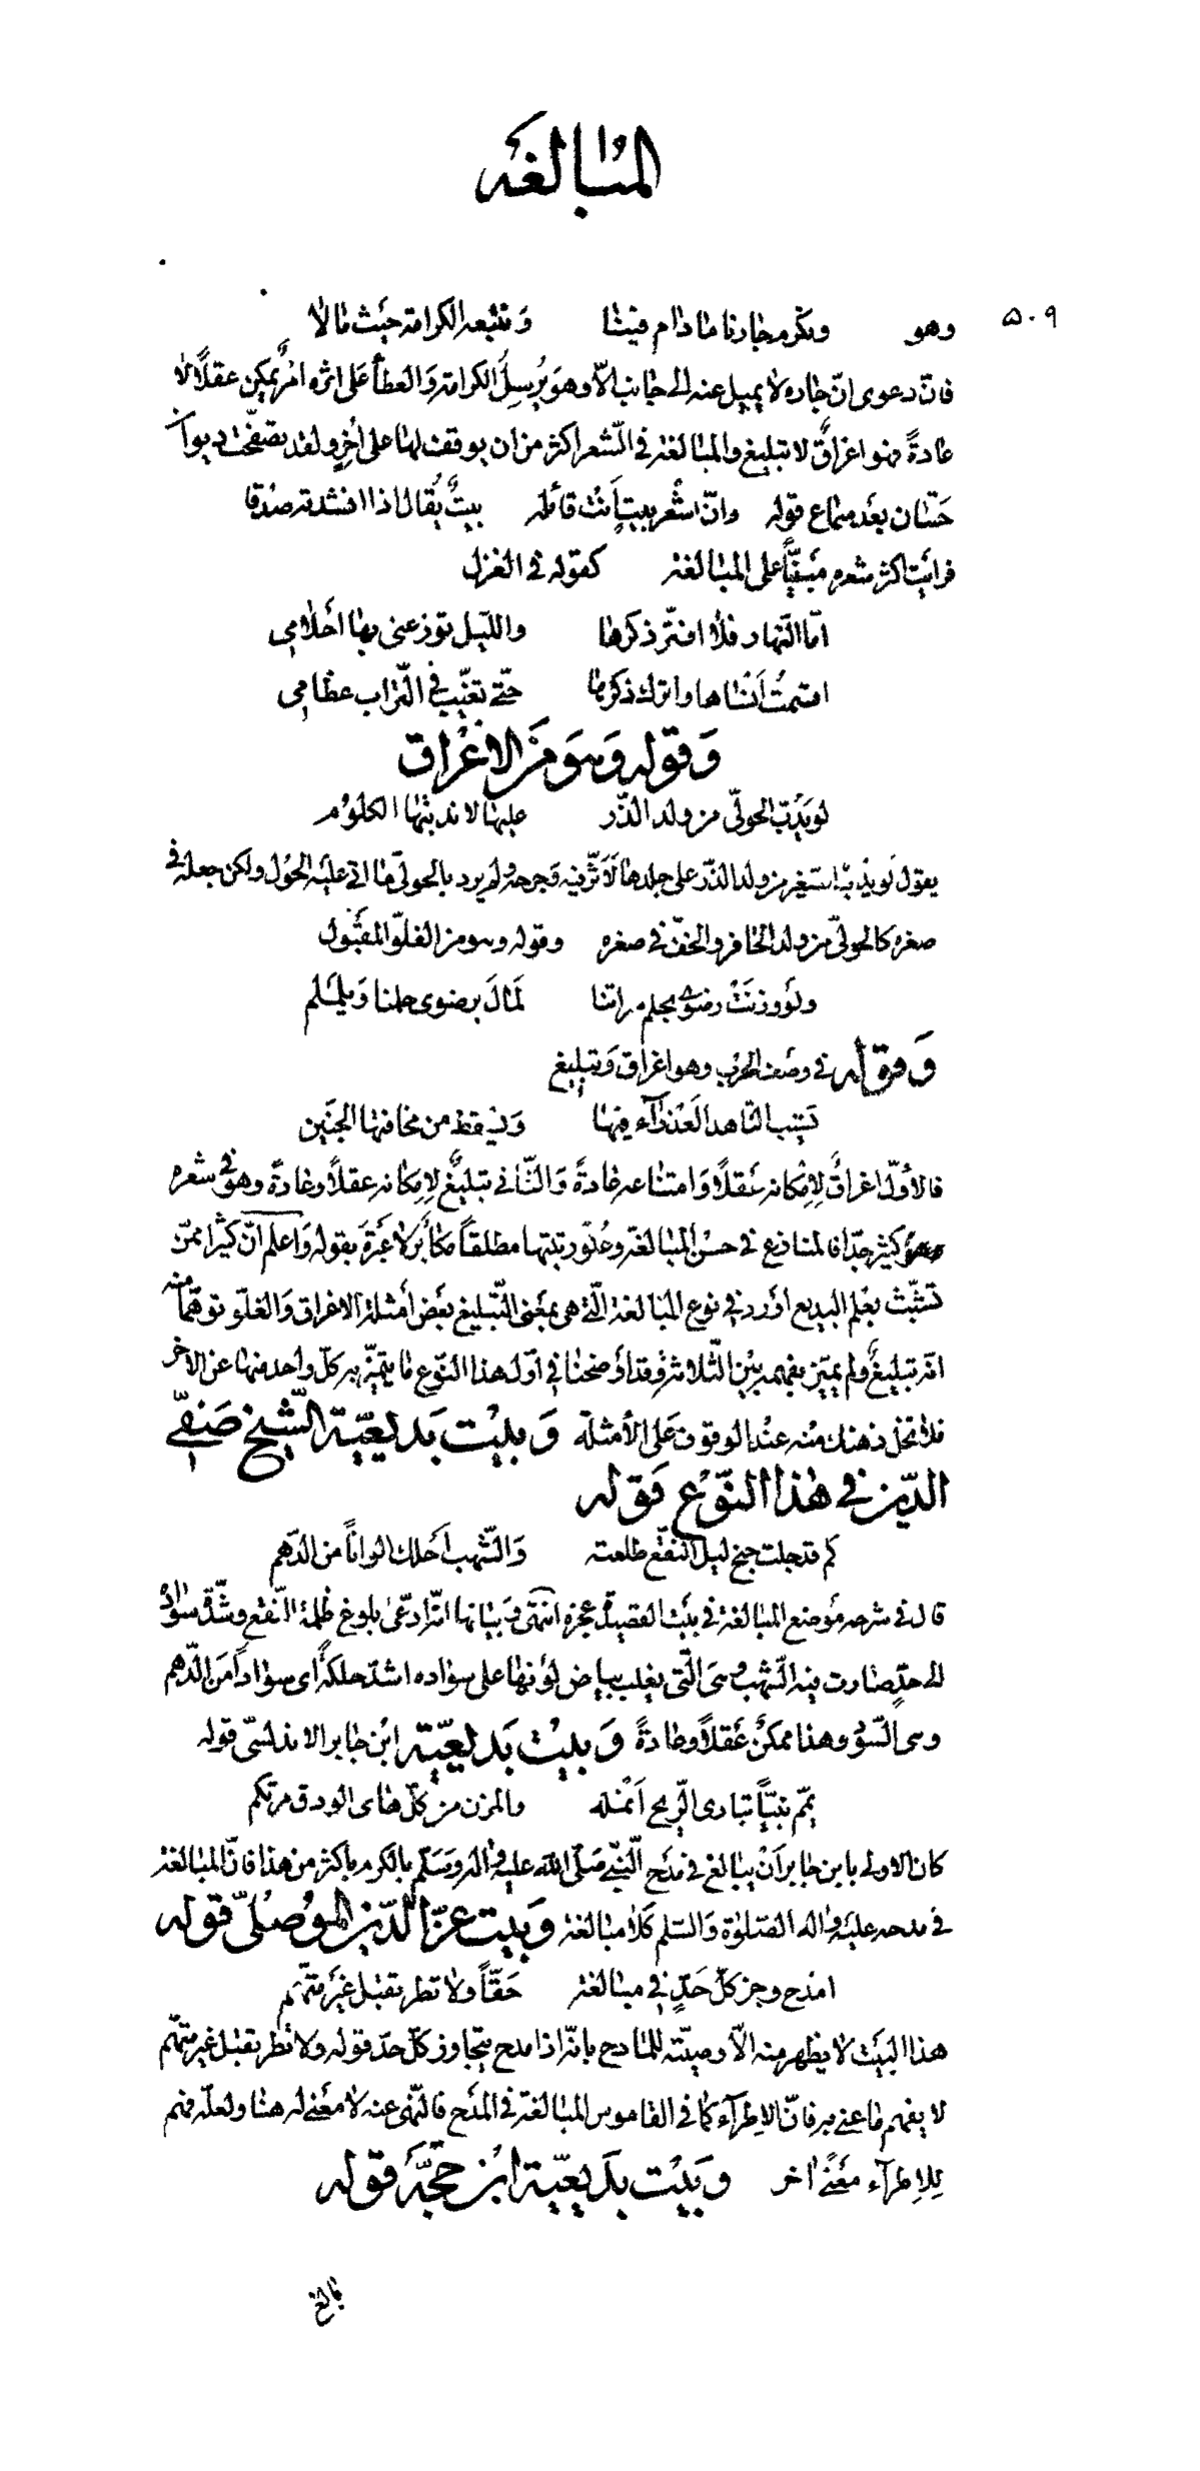 المبالغة
٥٠٩
وهو ونكرم جارنا ما دام فينا ونتبعه الكرامة حيث مالا
فانّ دعوى انّ جاره لا يميل عنه الى جانب الّا وهو يُرسل الكرامة والعطاء على اثره امرٌ يمكن عقلًا لا
عادةً فهو اغراقٌ لا تبليغ والمبالغة في الشّعر اكثر من ان يوقف لها على آخرٍ ولقد تصفّحت ديوان
حسّان بعد سماع قوله وانّ اشعر بيتٍ أنت قائله بيتٌ يُقال اذا انشدته صدقا
فرايت اكثر شعره مبنيّاً على المبالغة كقوله في الغزل
امّا النّهار فلا افتّر ذكرها والليل توزعني بها أحلامي
اقسمتُ أنساها واترك ذكرها حتّى تغيّب في التّراب عظامي
وقوله وهو من الاغراق
لو يدبّ الحوليّ من ولد الذّر عليها لاندبتها الكلوم
يقول لو يدبّ الصغير من ولد الذّر على جلدها لأثّر فيه وجرحه ولم يرد بالحوليّ ما اتى عليه الحول ولكن جعله في
صغره كالحوليّ من ولد الحافر والخفّ في صغره وقوله وهو من الغلوّ المقبول
ولو وزنت رضوى بحلم سراتنا لمال برضوى حلمنا ويلملم
وقوله في وصف الحرب وهو اغراق وتبليغ
تشيب الناهد العذرآء فيها ويسقط من مخافتها الجنين
فالاوّل اغراقٌ لإمكانه عقلًا وامتناعه عادةً والثّاني تبليغٌ لإمكانه عقلًا وعادةً وهو في شعره
كثير جدّا فالمنازع في حسن المبالغة وعلوّ رتبتها مطلقاً مكابر لا عبرة بقوله واعلم انّ كثيرًا ممّن
تشبّث بعلم البديع أورد في نوع المبالغة الّتي هي بمعنى التّبليغ بعض أمثلة الاغراق والغلوّ توهّما منه
انّه تبليغٌ ولم يميّز بفهمه بين الثّلاثة وقد أوضحنا في اوّل هذا النّوع ما يتميّز به كلّ واحد منها عن الآخر
فلا تخل ذهنك منه عند الوقوف على الأمثلة وبيت بديعيّة الشّيخ صفيّ
الدّين في هذا النّوع قوله
كم قد جلت جنح ليل النّقع طلعته والشّهب أحلك الواناً من الدّهم
قال في شرحه موضع المبالغة في بيت القصيدة عجزه انتهى وبيانها انّه ادّعى بلوغ ظلمة النّقع وشدّة سواده
الى حدّ صارت فيه الشّهب وهي الّتي يغلب بياض لونها على سواده اشدّ حلكةً اى سوادًا من الدّهم
وهي السّود وهذا ممكن عقلًا وعادةً وبيت بديعيّة ابن جابر الاندلسيّ قوله
يمّم نبيّاً تبارى الرّيح أنمله والمزن من كلّ هامى الودق مرتكم
كان الاولى بابن جابر أن يبالغ في مدح النّبيّ صلّى الله عليه وآله وسلّم بالكرم باكثر من هذا فانّ المبالغة
في مدحه عليه وآله الصّلوة والسّلم كلا مبالغة وبيت عزّ الدّين الموصليّ قوله
امدح وجز كلّ حدّ في مبالغة حقّاً ولا تطر تقبل غير متّهم
هذا البيت لا يظهر منه الّا وصيّته للمادح بانّه اذا مدح يتجاوز كلّ حدّ قوله ولا تطر تقبل غير متّهم
لا يفهم ما عنى به فانّ الاطرآء كما في القاموس المبالغة في المدح فالنّهى عنه لا معنى له هنا ولعلّه فهم
للاطرآء معنًى آخر وبيت بديعيّة ابن حجّة قوله
بالغ